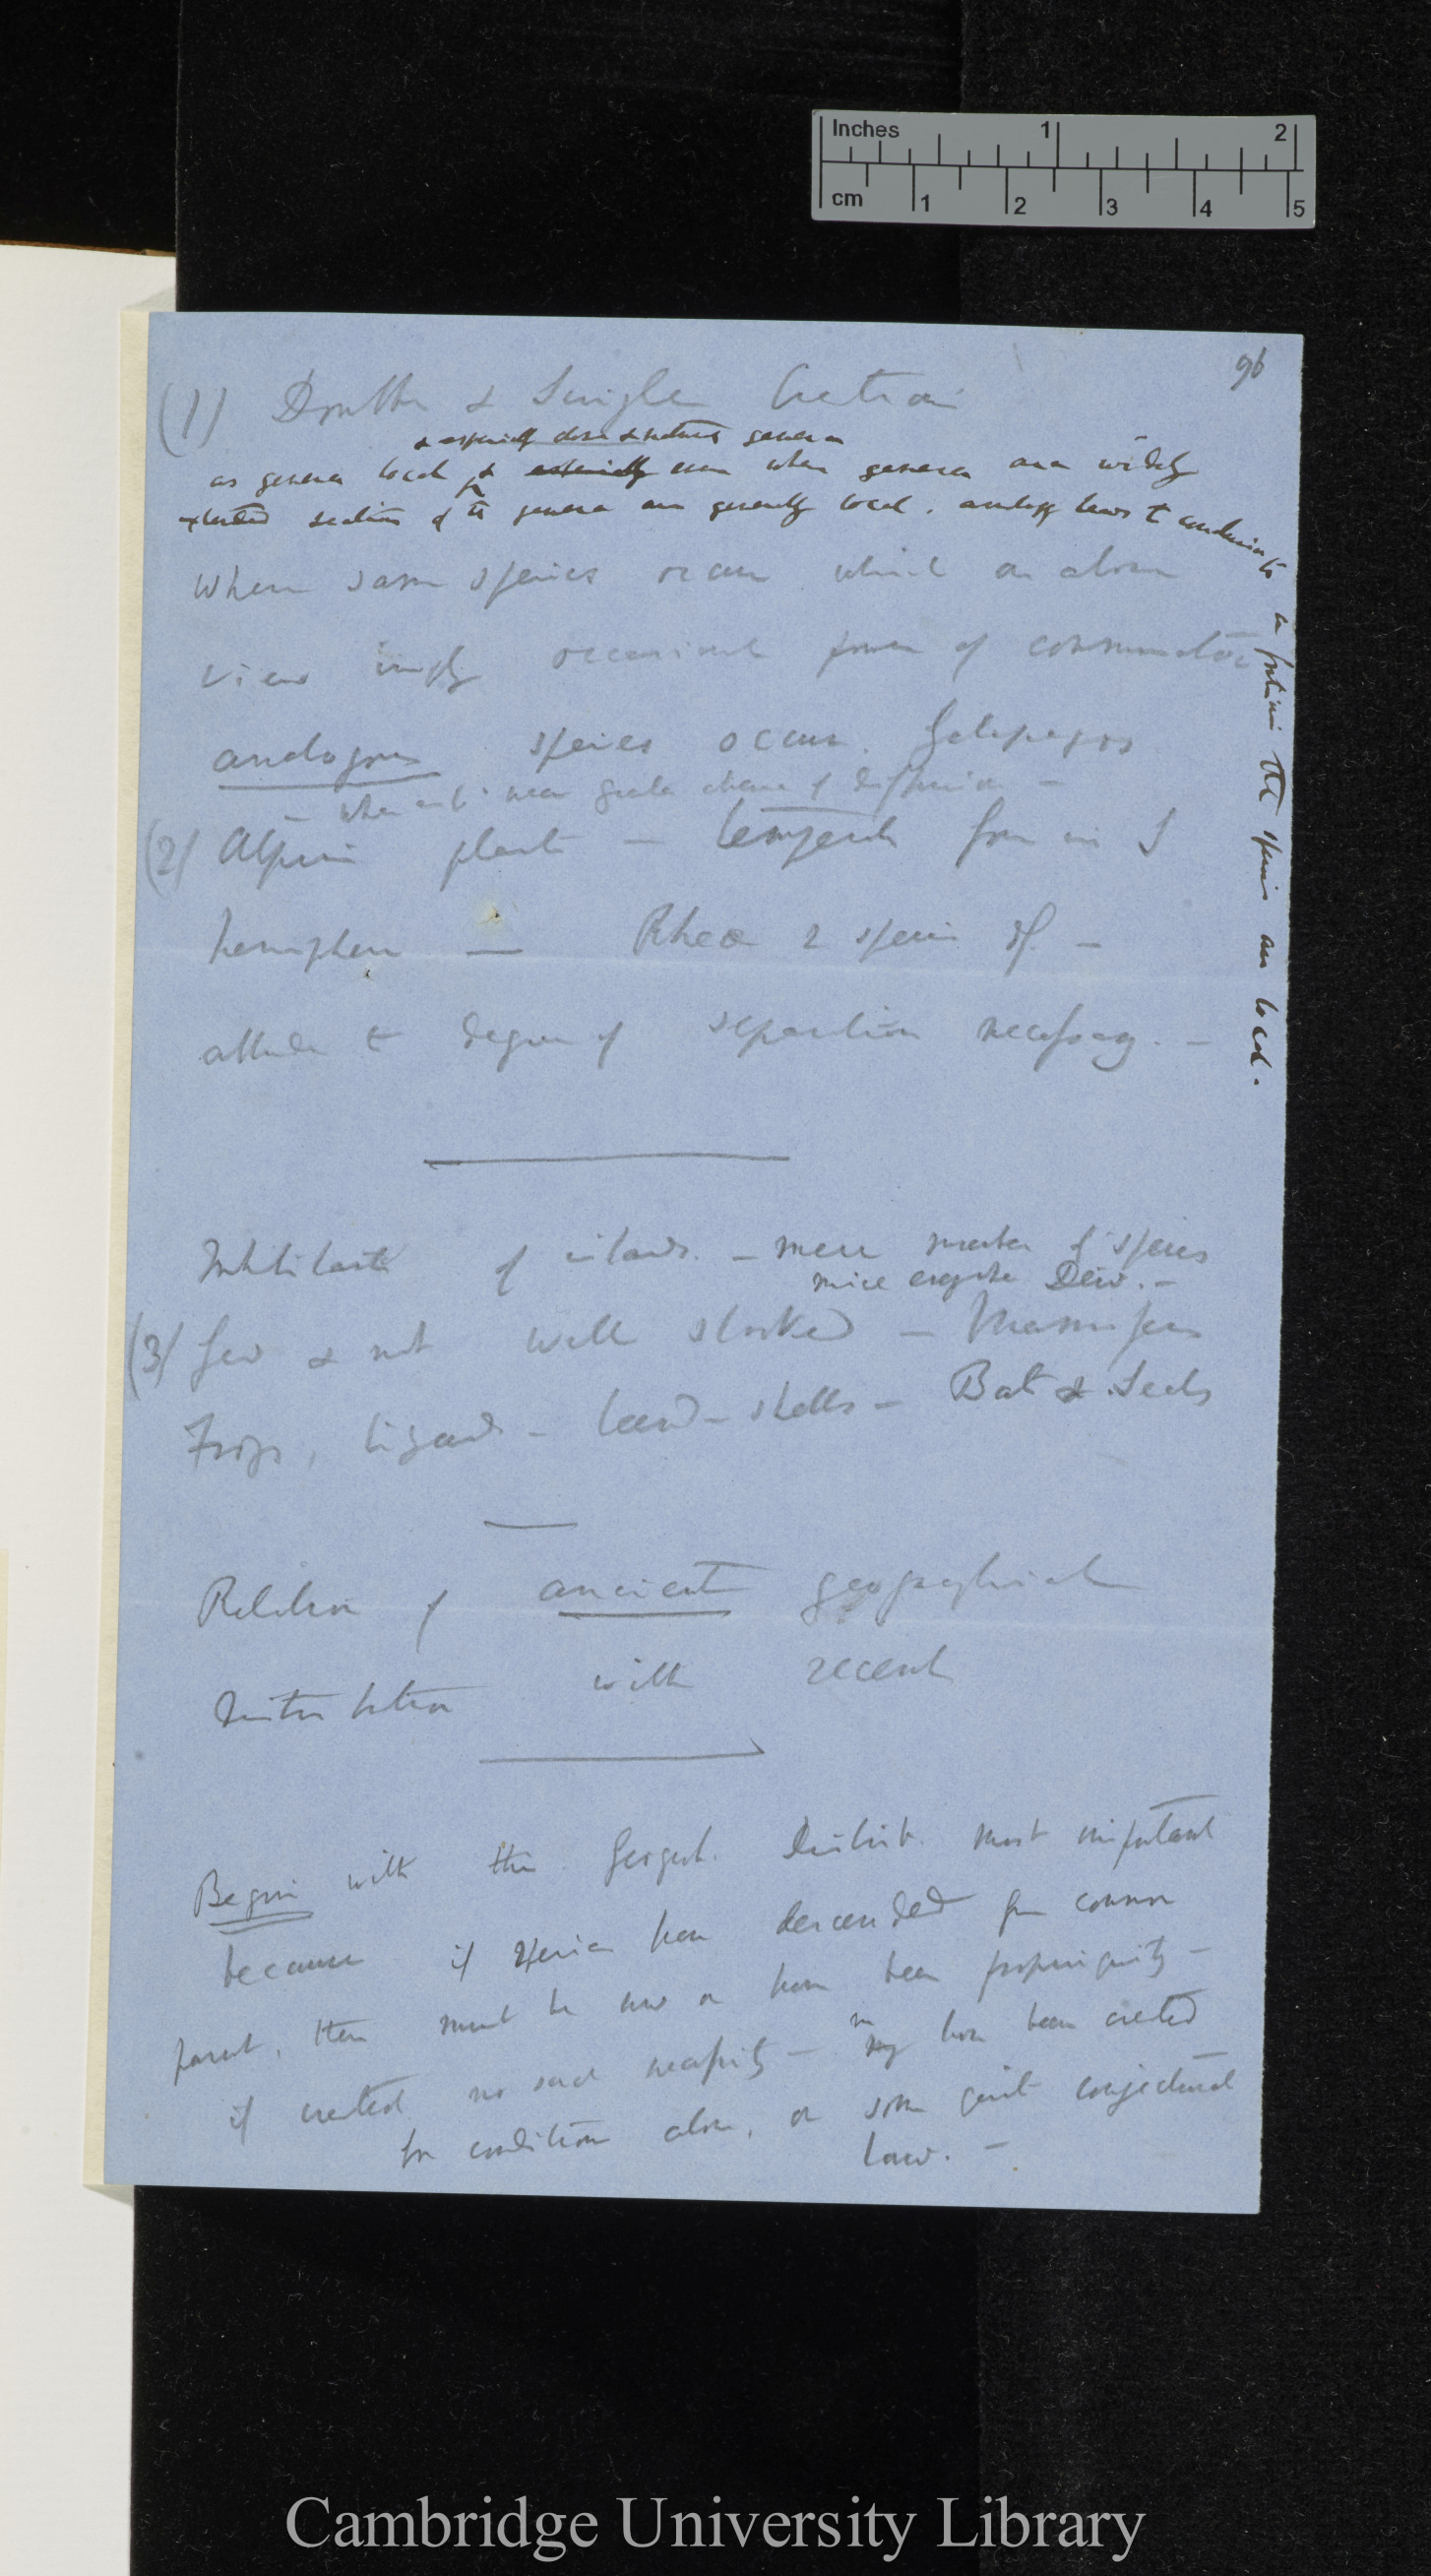 Inches 1 2
cm 1 2 3 4 5
96
(1) Double & Single Creation
& especially close & natural genera
as genera local & especially even when genera are widely
extended sections of the genera are generally local, analogy leads to conclusion to
a fortiori the species are local.
When same species occur which on above
view imply occasional power of communication
analogous species occur. Galapagos
when & greater chance of diffusion –
(2) Alpine plants — temperate from in S
hemisphere — Rhea 2 species of —
allude to degree of separation necessary. —
Inhabitants of islands. — mere number of species
mice except Deer. —
(3) few & not well stocked — Mammifers
Frogs, lizards — land-shells — Bat & Seals
Relation of ancient geographical
distribution with recent
Begin with the Geograph. Distrib. most important
because if species have descended from common
parent, there must be now or have been propinquity —
if created no such necessity — may have been created
for conditions alone, or some quite conjectural
law. —
Cambridge University Library